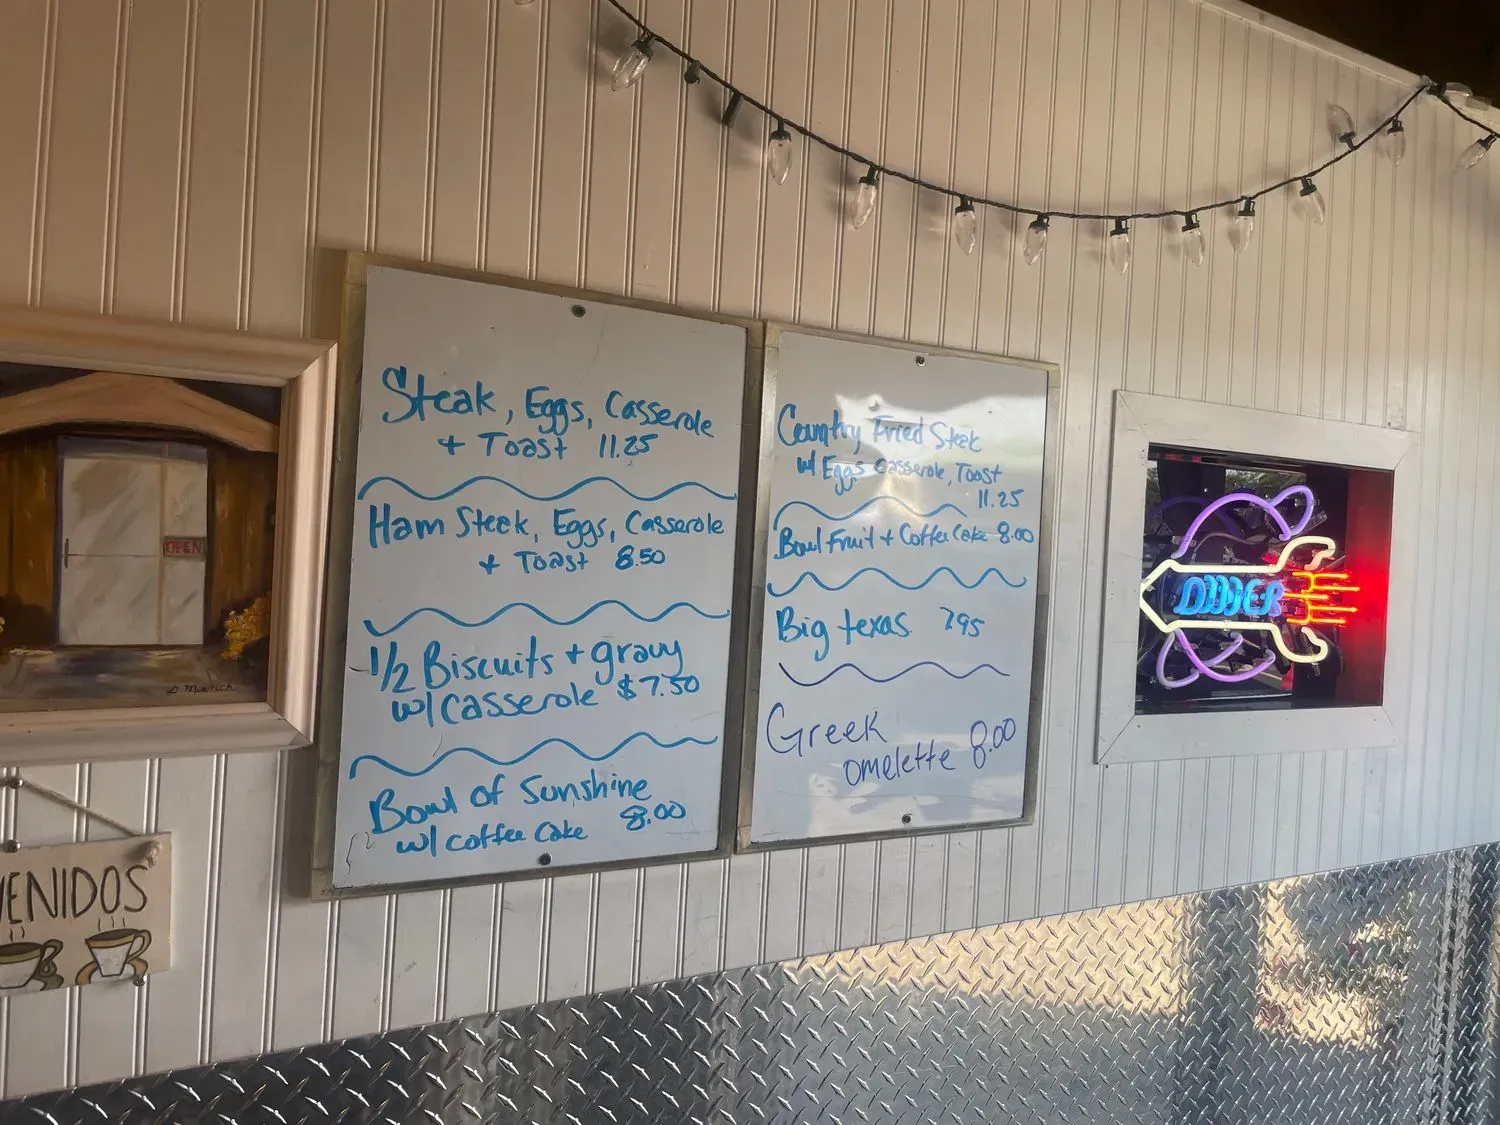 Steak, Eggs, Casserole
+ Toast 11.25
Ham Steak, Eggs, Casserole
+ Toast 8.50
1/2 Biscuits + gravy
w/ casserole $7.50
Bowl of Sunshine
w/ coffee Cake 8.00
Country Fried Steak
w/ Eggs casserole, Toast
11.25
Bowl Fruit + Coffee Cake 8.00
Big texas 795
Greek
omelette 8.00
DINER
OPEN
D Muench
VENIDOS